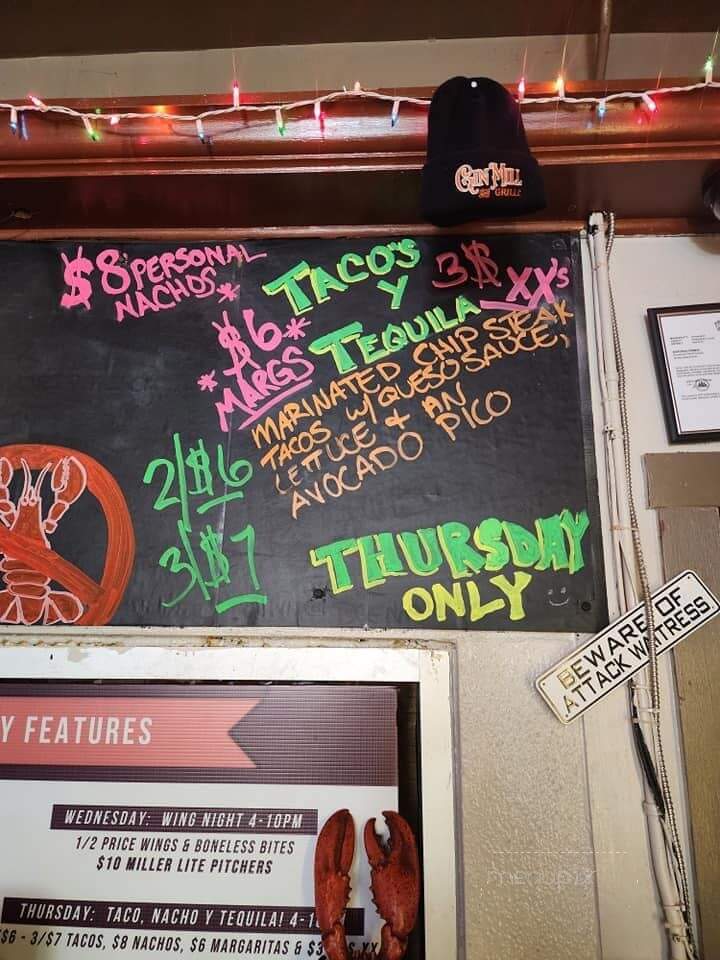 GIN MILL
& GRILLE
$8 PERSONAL
NACHOS *
TACO'S
Y
TEQUILA
3$
XX'S
* $6 *
MARGS
MARINATED CHIP STEAK
TACOS W/ QUESO SAUCE,
LETTUCE & AN
AVOCADO PICO
2/$6
3/$7
THURSDAY
ONLY
BEWARE OF
ATTACK WAITRESS
Y FEATURES
WEDNESDAY: WING NIGHT 4-10PM
1/2 PRICE WINGS & BONELESS BITES
$10 MILLER LITE PITCHERS
THURSDAY: TACO, NACHO Y TEQUILA! 4-1
$6 - 3/$7 TACOS, $8 NACHOS, $6 MARGARITAS & $3
menupix